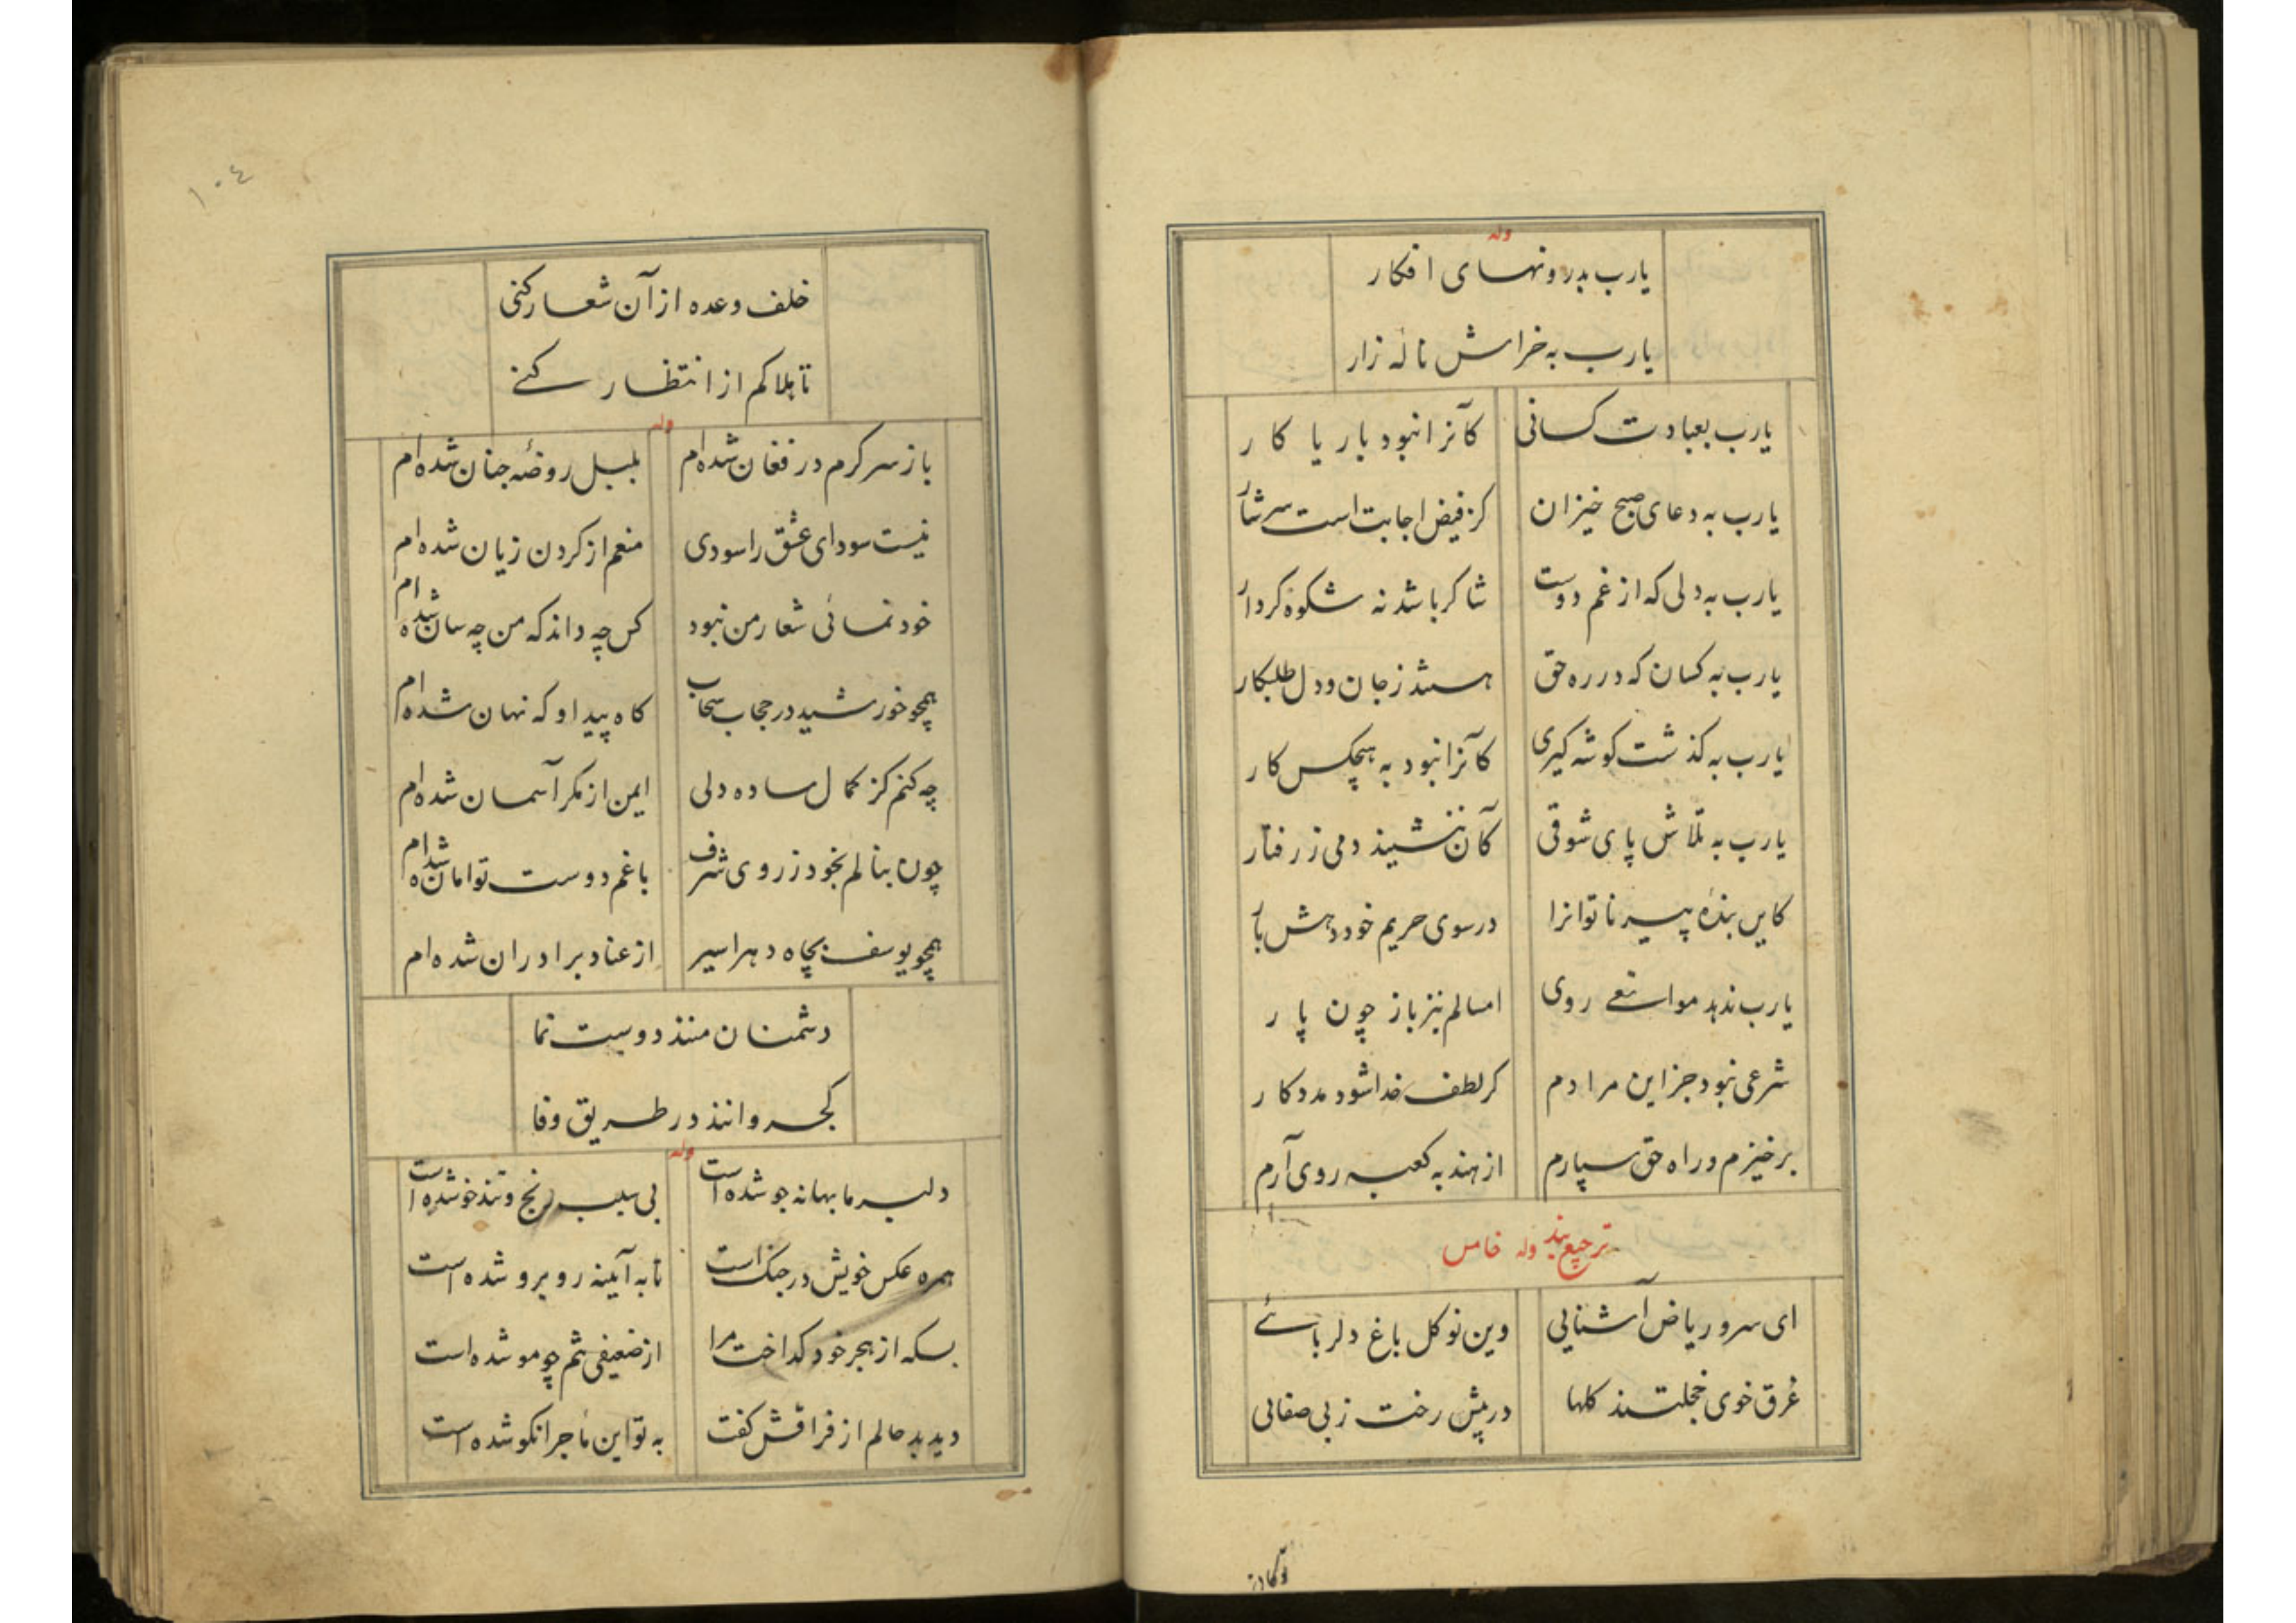 وله
یارب بدرونهای افکار
یارب به خراش نالهٔ زار
یارب بعبادت کسانی کآنرا نبود بار یا کار
یارب به دعای صبح خیزان کز فیض اجابت است سرشار
یارب به دلی که از غم دوست شاکر باشد نه شکوه کردار
یارب به کسان که در ره حق هستند ز جان و دل طلبکار
یارب به کذشت کوشه کیری کآنرا نبود به هیچکس کار
یارب به تلاش پای شوقی کآن ننشیند دمی ز رفتار
کاین بندهٔ پیر ناتوانرا در سوی حریم خود دهش بار
یارب ندهد موانعی روی امسالم نیز باز چون پار
شرعی نبود جز این مرادم کر لطف خدا شود مددکار
برخیزم و راه حق سپارم از هند به کعبه روی آرم
ترجیع بند وله خامس
ای سرو ریاض آشنایی وین نوکل باغ دلربائے
غرق خوی خجلتند کلها در پیش رخت ز بی صفائی
۱۰۴
خلف وعده از آن شعار کنی
تا هلاکم از انتظار کنے
وله
باز سر کرم در فغان شده‌ام بلبل روضهٔ جنان شده‌ام
نیست سودای عشق را سودی منعم از کردن زیان شده‌ام
خود نمائی شعار من نبود کس چه داند که من چه سان شده‌ام
همچو خورشید در حجاب سحاب کاه پیدا و که نهان شده‌ام
چه کنم کز کمال ساده دلی ایمن از مکر آسمان شده‌ام
چون بنالم بخود ز روی شرف با غم دوست توامان شده‌ام
همچو یوسف بچاه دهر اسیر از عناد برادران شده‌ام
دشمنان منند دوست نما
کجروانند در طریق وفا
وله
دلبر ما بهانه جو شده است بی سبب رنج و تندخو شده است
همره عکس خویش در جنک است تا به آیینه روبرو شده است
بسکه از هجر خود کداخت مرا از ضعیفی تنم چو مو شده است
دید بد حالم از فراقش کفت به تو این ماجرا نکو شده است